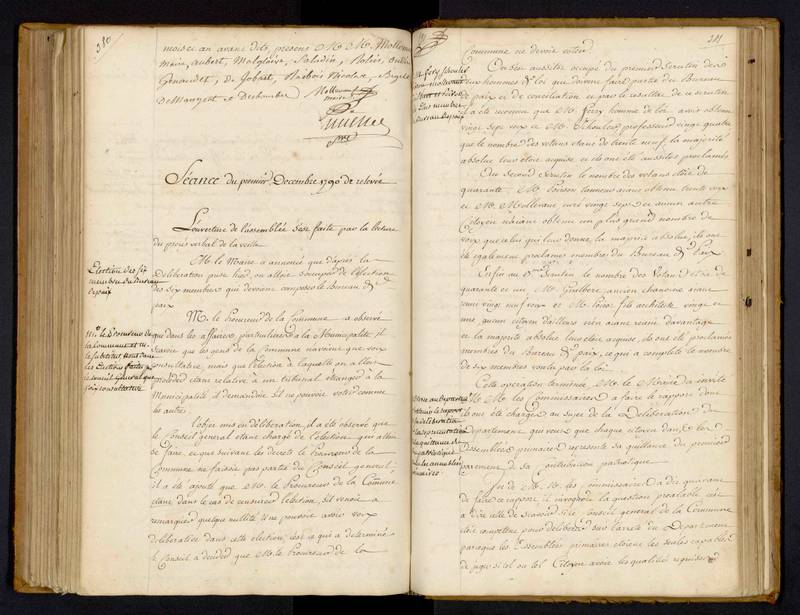 280
mois et an avant dits, presens M. M. Mollevaut
maire, aubert, Malglaive, Saladin,
de Jobart, Nicolas,
et Deshombres
Mollevaut
maire
Séance du premier Decembre 1790 de relevée
L'ouverture de l'assemblée s'est faite par la lecture
du procès verbal de la veille
Election des six
membres du Bureau
de paix
M. le Maire a annoncé que d'après la
Deliberation prise hier, on alloit s'occuper de l'Election
des six membres qui devoient composer le Bureau de
paix
M. le Procureur de
la Commune et
le Substitut, n'ont dans
les Elections faites par
le conseil General que
voix consultative
M. le Procureur de la Commune a observé
que dans les affaires particulieres à la Municipalité, il
scavoit que les gens de la Commune n'avoient que voix
consultative, mais que l'Election à laquelle on alloit
proceder etant relative à un tribunal étranger à la
Municipalité il demandoit s'il ne pouvoit voter comme
les autres.
L'objet mis en deliberation, il a eté observé que
le Conseil general etant chargé de l'election qui alloit
se faire, et que suivant les decrets le Procureur de la
Commune ne faisoit pas partie du Conseil general;
il a eté ajouté que M. le Procureur de la Commune
etant dans le cas de censurer l'election, s'il venoit à
remarquer quelque nullité il ne pouvoit avoir voix
deliberative dans cette election, c'est ce qui a determiné
le Conseil à decider que M. le Procureur de la
281
Commune ne devoit voter.
On s'est aussitôt occupé du premier Scrutin des
deux hommes de loi qui doivent faire partie du Bureau
de paix et de conciliation et par le resultat de ce scrutin
il a eté reconnu que M. Fery homme de loi avoit obtenu
vingt sept voix et M. Schouller professeur vingt quatre
que le nombre des votans etant de trente neuf, la majorité
absolue leur etoit acquise et ils ont eté aussitôt proclamés
Au Second Scrutin le nombre des votans étoit de
quarante, M. Poirson tanneur aiant obtenu trente voix
et M. Mollevaut curé vingt sept et aucun autre
Citoyen n'aiant obtenu un plus grand nombre de
voix que celui qui leur donne la majorité absolue, ils ont
été également proclamés membres du Bureau de Paix
Enfin au 3me Scrutin le nombre des Votans étoit de
quarante et un M. Guilbert, ancien chanoine aiant
reuni vingt neuf voix et M. Poirot fils architecte vingt et
une, aucun citoyen d'ailleurs n'en aiant reuni davantage
et la majorité absolue leur etoit acquise, ils ont eté proclamés
membres du Bureau de paix, ce qui a completté le nombre
de six membres voulu par la loi.
Cette operation terminée, M. le Maire a invité
M. M. les Commissaires à faire le rapport dont
ils ont été chargés au sujet de la Deliberation du
departement, qui veut que chaque citoyen dans les
Assemblées primaires represente sa quittance du premier
paiement de sa contribution patriotique
Un de M. M. les commissaires a dit qu'avant
de faire ce rapport il invoquoit la question prealable c'est
à dire celle de scavoir si le Conseil general de la Commune
étoit competent pour deliberer sur l'arreté du Departement
parce que les Assemblées primaires etoient les seules capables
de juger si tel ou tel Citoyen avoit les qualités requises